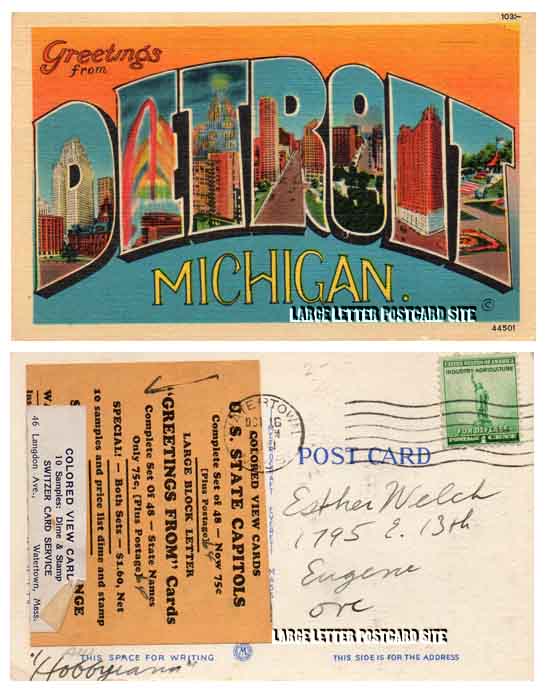 103-
Greetings
from
DETROIT
MICHIGAN.
©
LARGE LETTER POSTCARD SITE
44501
COLORED VIEW CARDS
U. S. STATE CAPITOLS
Complete Set of 48 — Now 75c
(Plus Postage)
LARGE BLOCK LETTER
"GREETINGS FROM" Cards
Complete Set Of 48 — State Names
Only 75c, (Plus Postage)
SPECIAL! — Both Sets — $1.60, Net
10 samples and price list dime and stamp
COLORED VIEW CARD
10 Samples: Dime & Stamp
SWITZER CARD SERVICE
46 Langdon Ave., Watertown, Mass.
NGE
UNITED STATES OF AMERICA
INDUSTRY AGRICULTURE
FOR DEFENSE
POST CARD
Esther Welch
1795 E. 13th
Eugene
Ore
LARGE LETTER POSTCARD SITE
THIS SPACE FOR WRITING
THIS SIDE IS FOR THE ADDRESS
"Hobbyiana"